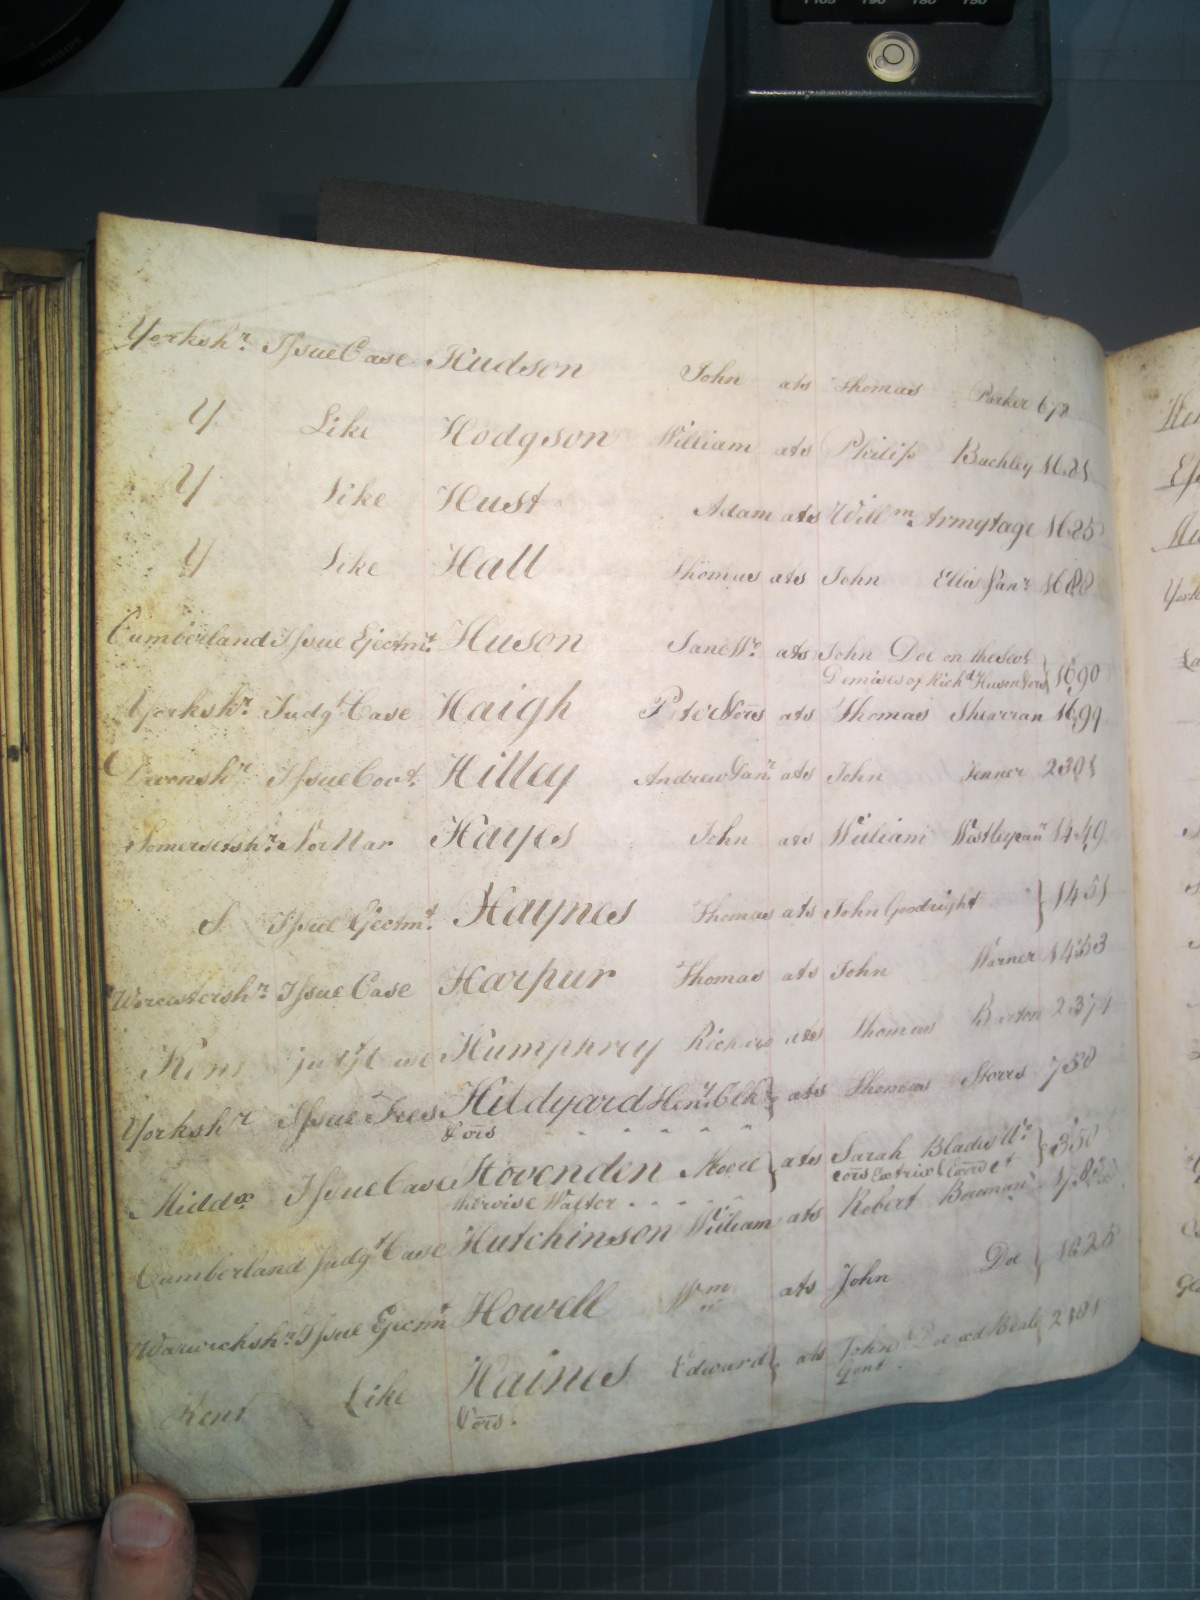 Yorkshr. Issue Case Hudson John ats Thomas Parker 678
Y Like Hodgson William ats Philip Buckley
Y Like Hust Adam ats Willm. Armytage 1685
Y Like Hall Thomas ats John Ellis Junr. 1688
Cumberland Issue Ejectmt. Huson Jane Wo. ats John Doe on the sevl
Demises of Richd. Huson &ors } 1690
Yorkshr. Judgt Case Haigh Peter &ors ats Thomas Shearran 1699
Devonshr Issue Covt. Hilley Andrew Junr. ats John Jenner
Somersetshr. Non Nar Hayes John ats William Westley 1449
S Issue Ejectmt. Haynes Thomas ats John Goodright } 1451
Worcestershr. Issue Case Harpur Thomas ats John Warner 1453
Kent Humphrey Richard ats Thomas
Yorkshr Issue Tres Hildyard Henry Clk } ats Thomas Storrs 750
& ors
Middx Issue Case Hovenden } ats Sarah Blades Wo }
therwise Walter
Cumberland Judgt Case Hutchinson William ats Robert Bowman
Warwickshr. Issue Ejectmt Howell Wm ats John Doe }
Kent Like Haines Edward } ats John Doe
& ors. Gent.